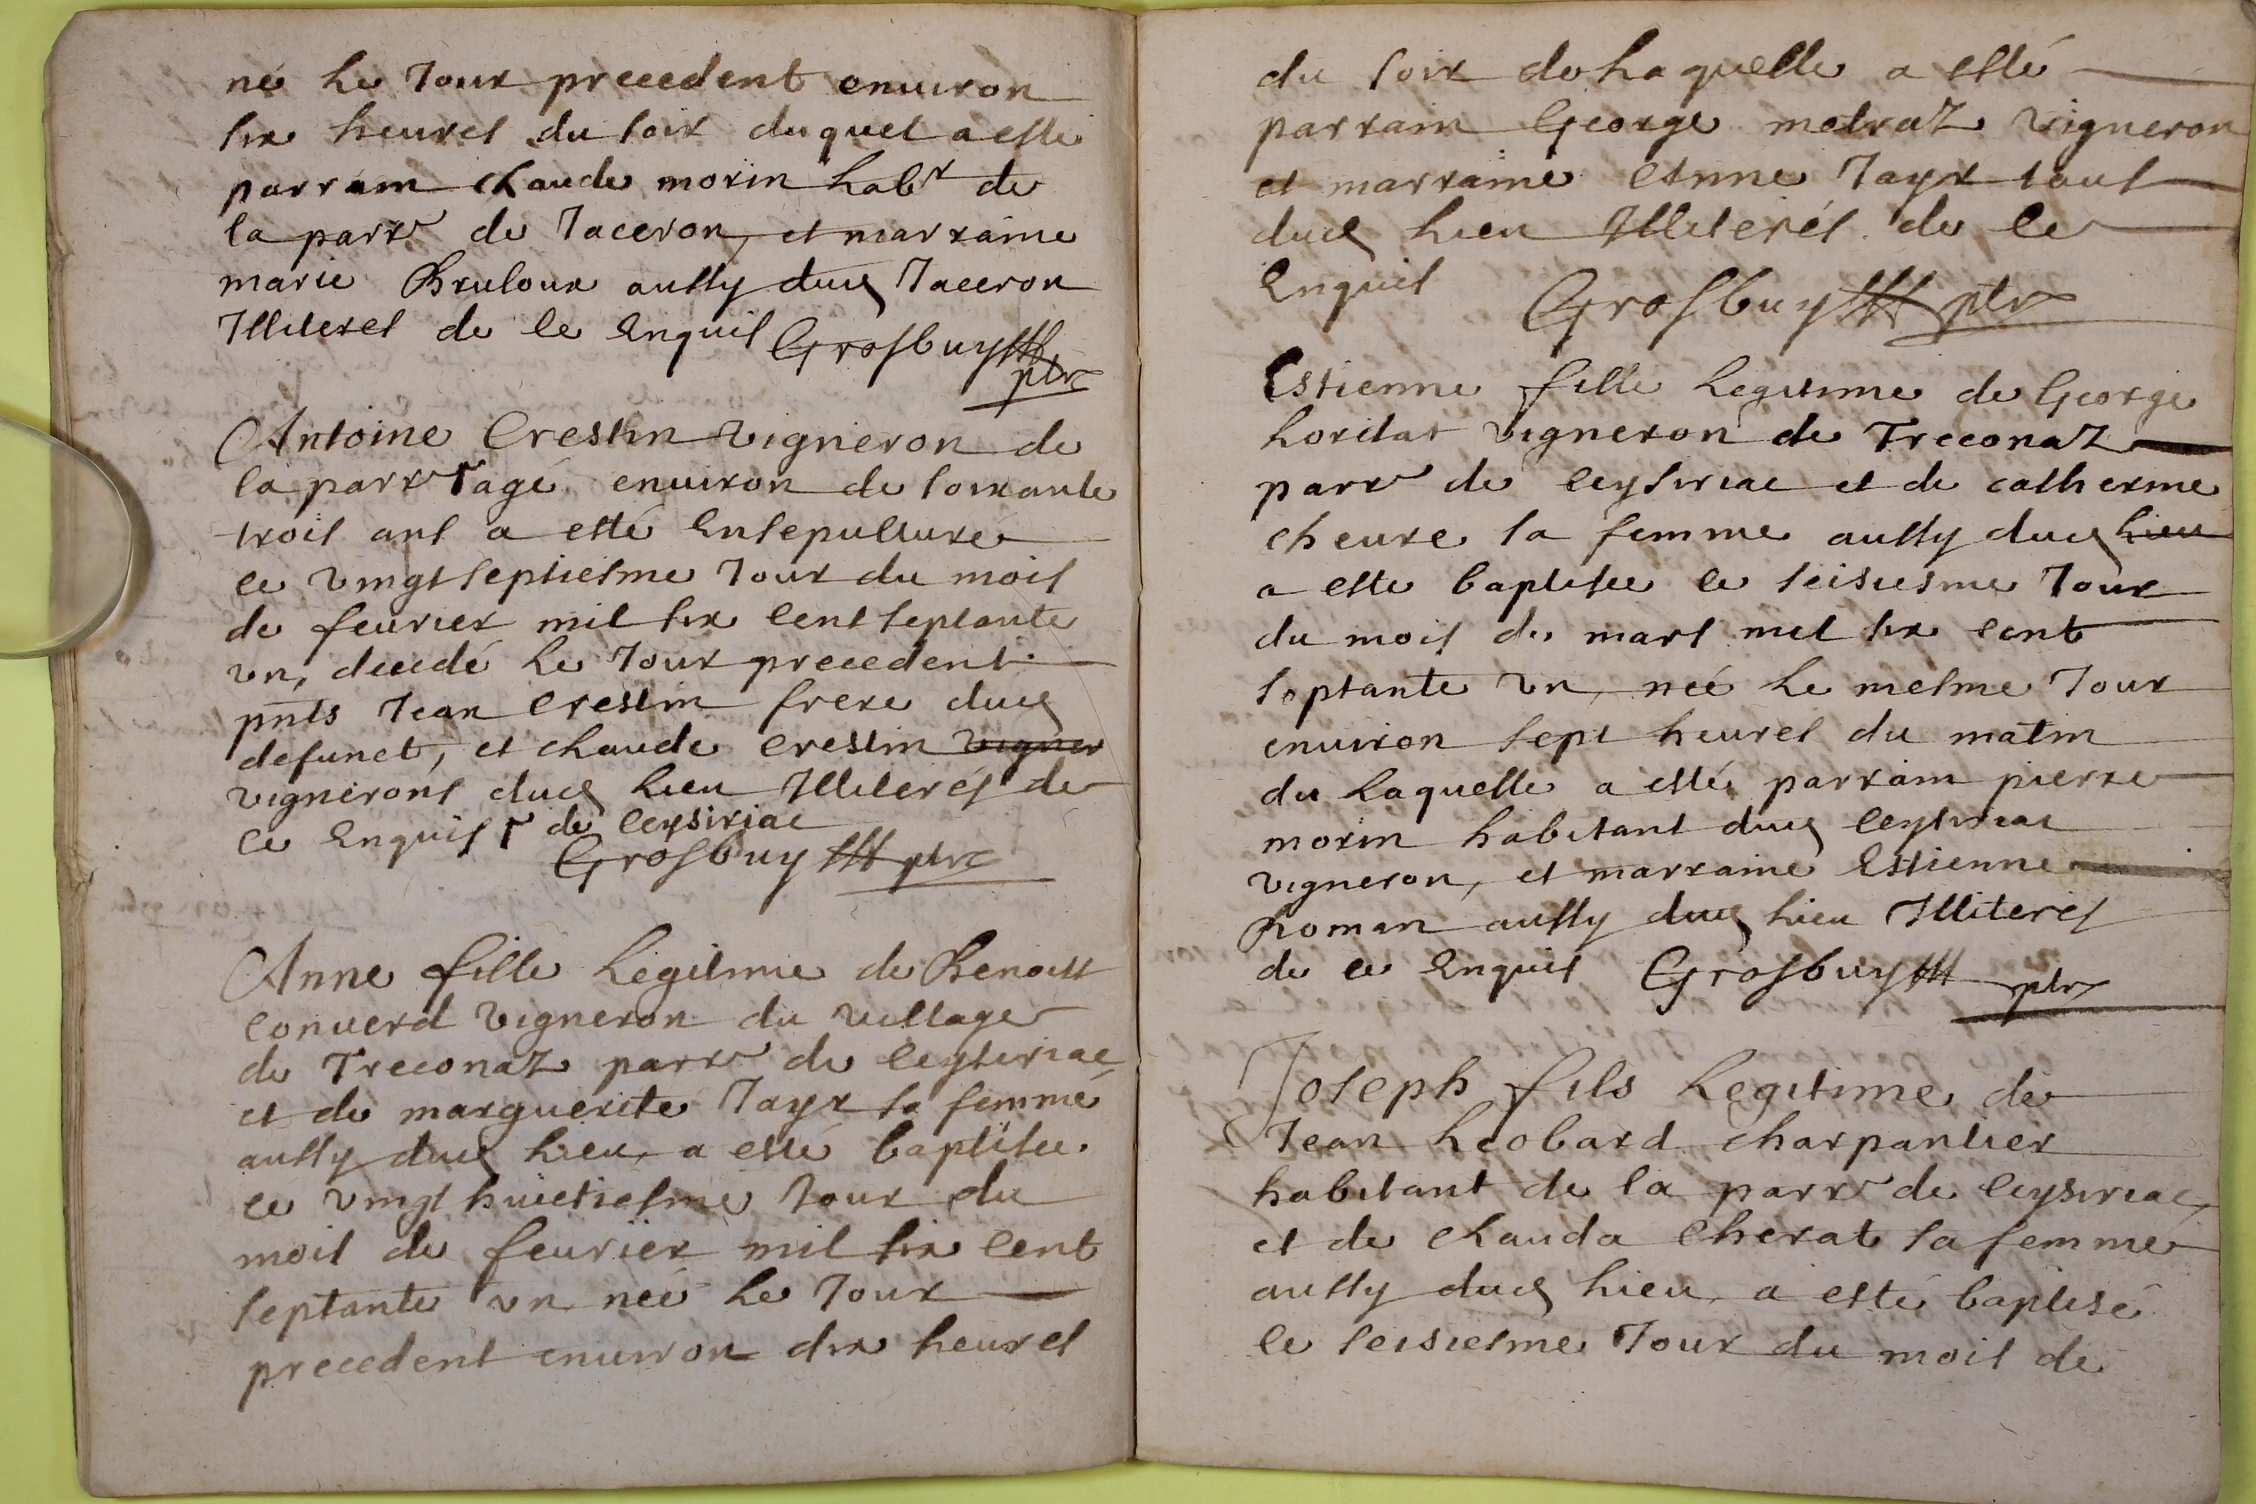 né le Jour precedent enuiron
six heures du soir duquel a esté
parrain claude morin habr de
la parre de Jaceron, et marraine
marie Bruloux aussy dud Jaceron
Illiteres de ce Enquis Grosbuy
ptre
Antoine Crestin vigneron de
la parre agé enuiron de soixante
trois ans a esté Ensepulturé
le vingt septiesme Jour du mois
de feurier mil six cent septante
vn, decedé le Jour precedent
pnts Jean Crestin frere dud
defunct, et claude Crestin vigner
vignerons dud lieu Illiterés de
ce Enquis de Ceysiriac
Grosbuy ptre
Anne fille legitime de Benoist
Conuerd vigneron du village
de Treconaz parre de Ceyseriac
et de marguerite Jayr sa femme
aussy dud lieu, a esté baptisée
le vingt huictiesme Jour du
mois de feurier mil six cent
septante vn née le Jour
precedent enuiron dix heures
du soir de laquelle a esté
parrain George motraz vigneron
et marraine Anne Jayr tous
dud lieu Illiterés de ce
Enquis Grosbuy ptre
Estienne fille legitime de George
loridat vigneron de Treconaz
parre de Ceysiriac et de catherine
cheure sa femme aussy dud lieu
a esté baptisée le seisiesme Jour
du mois de mars mil six cent
septante vn, née le mesme Jour
enuiron sept heures du matin
du laquelle a esté parrain pierre
morin habitant dud Ceysiriac
vigneron, et marraine Estienne
Roman aussy dud lieu Illiterés
de ce Enquis Grosbuy ptre
Joseph fils legitime de
Jean Leobard charpantier
habitant de la parre de Ceysiriac,
et de clauda Cherat sa femme
aussy dud lieu, a esté baptisé
le seisiesme Jour du mois de